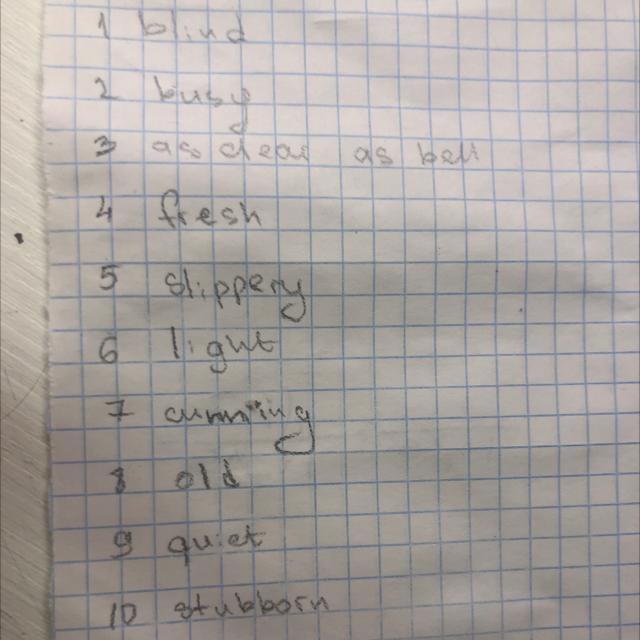 1 blind
2 busy
3 as clear as bell
4 fresh
5 slippery
6 light
7 cunning
8 old
9 quiet
10 stubborn